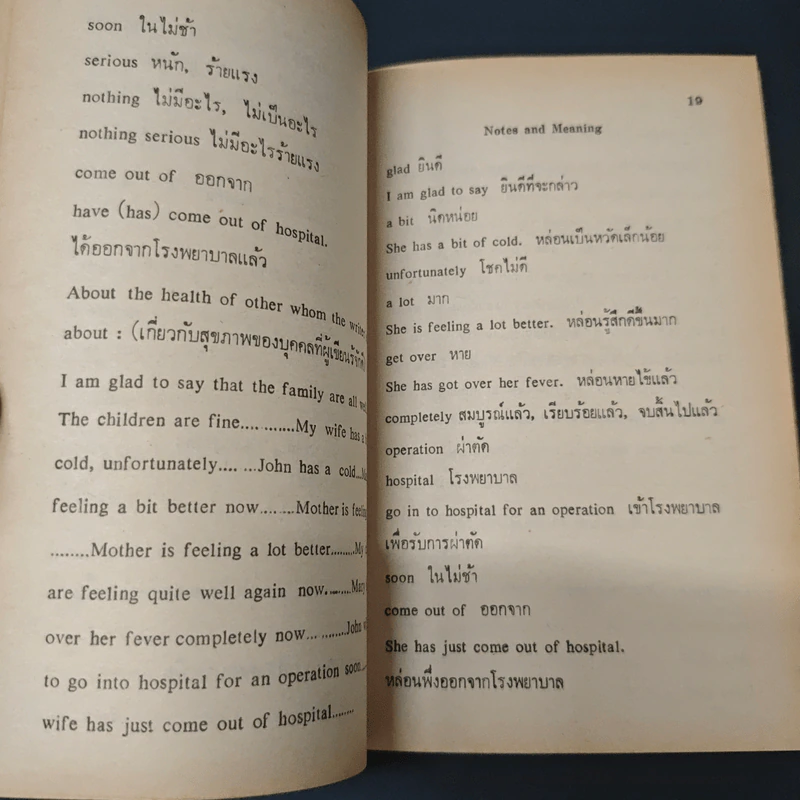 soon ในไม่ช้า
serious หนัก, ร้ายแรง
nothing ไม่มีอะไร, ไม่เป็นอะไร
nothing serious ไม่มีอะไรร้ายแรง
come out of ออกจาก
have (has) come out of hospital.
ได้ออกจากโรงพยาบาลแล้ว
About the health of other whom the
about : (เกี่ยวกับสุขภาพของบุคคลที่ผู้เขียนรู้จัก
I am glad to say that the family are all
The children are fine............My wife has
cold, unfortunately.... ...John has a cold...
feeling a bit better now........Mother is
........Mother is feeling a lot better.........My
are feeling quite well again now.........Mary
over her fever completely now............John
to go into hospital for an operation soon...
wife has just come out of hospital........
19
Notes and Meaning
glad ยินดี
I am glad to say ยินดีที่จะกล่าว
a bit นิดหน่อย
She has a bit of cold. หล่อนเป็นหวัดเล็กน้อย
unfortunately โชคไม่ดี
a lot มาก
She is feeling a lot better. หล่อนรู้สึกดีขึ้นมาก
get over หาย
She has got over her fever. หล่อนหายไข้แล้ว
completely สมบูรณ์แล้ว, เรียบร้อยแล้ว, จบสิ้นไปแล้ว
operation ผ่าตัด
hospital โรงพยาบาล
go in to hospital for an operation เข้าโรงพยาบาล
เพื่อรับการผ่าตัด
soon ในไม่ช้า
come out of ออกจาก
She has just come out of hospital.
หล่อนพึ่งออกจากโรงพยาบาล